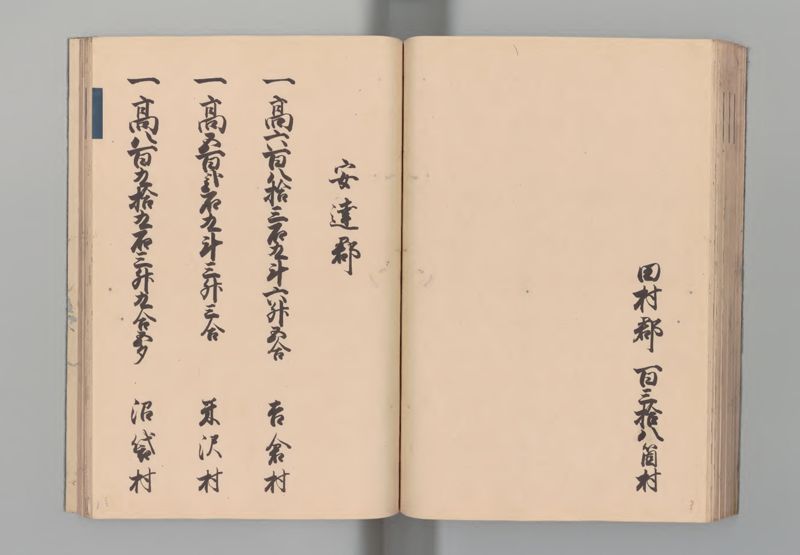 田村郡 百三拾八箇村
安達郡
一高六百八拾三石九斗六升五合 吉倉村
一高五百弐石九斗三升三合 米沢村
一高八百九拾九石三升九合五夕 沼袋村